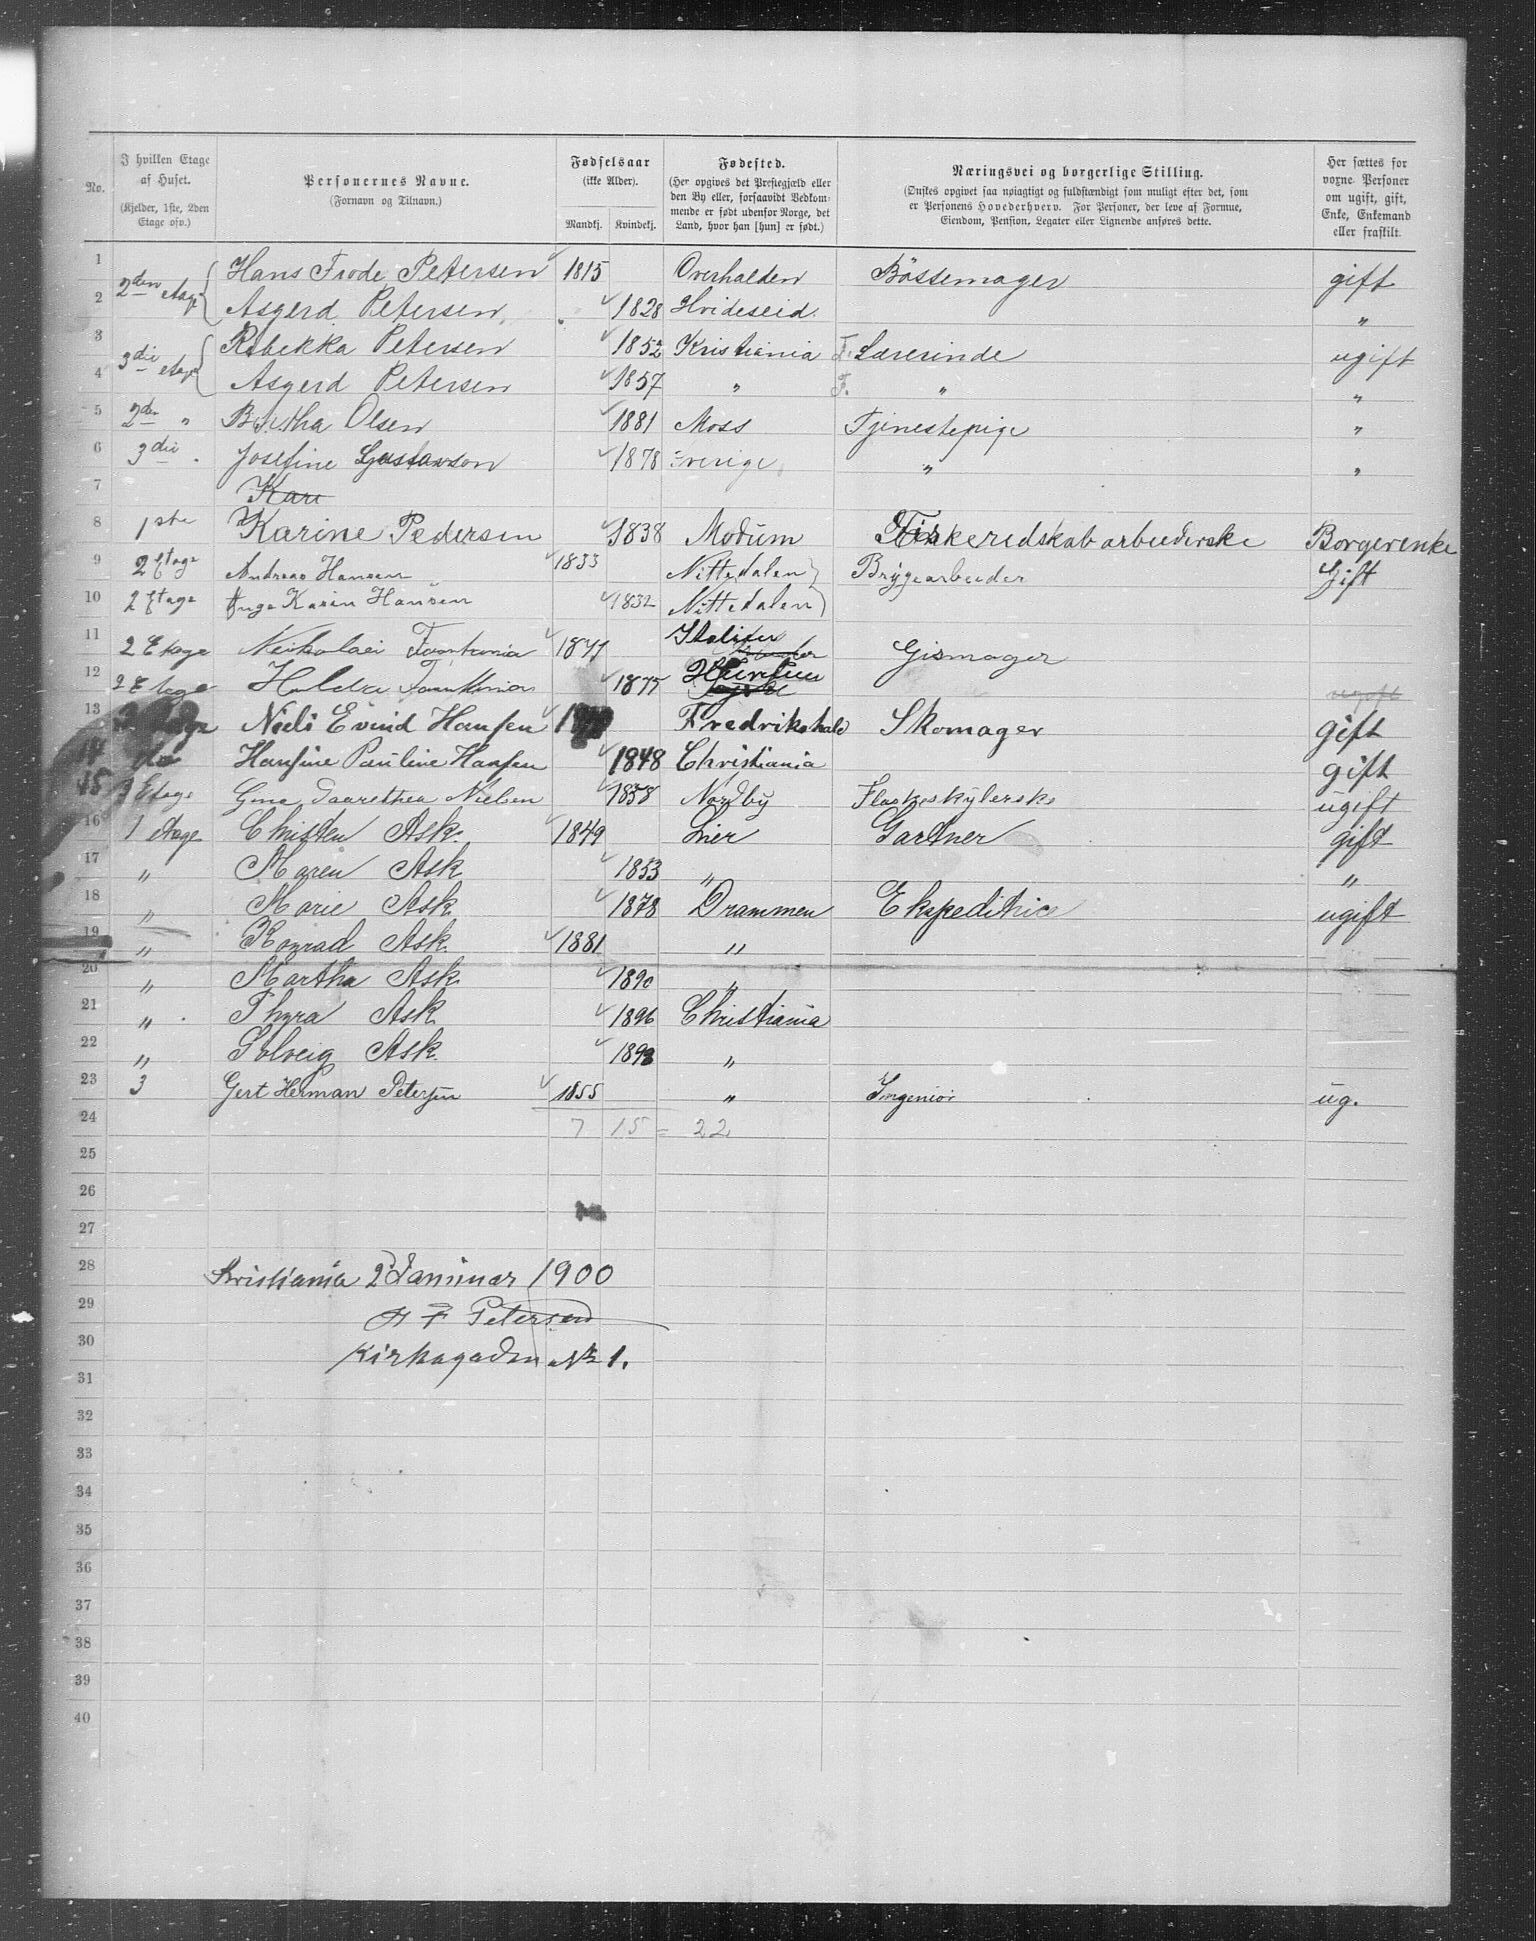 No. | I hvilken Etage af Huset. (Kjelder, 1ste, 2den Etage osv.) | Personernes Navne. (Fornavn og Tilnavn.) | Fødselsaar (ikke Alder). Mandkj. | Kvindekj. | Fødested. (Her opgives det Prestegjæld eller den By eller, forsaavidt Vedkommende er født udenfor Norge, det Land, hvor han [hun] er født.) | Næringsvei og borgerlige Stilling. (Ønskes opgivet saa nøiagtigt og fuldstændigt som muligt efter det, som er Personens Hovederhverv. For Personer, der leve af Formue, Eiendom, Pension, Legater eller Lignende anføres dette. | Her sættes for voxne Personer om ugift, gift, Enke, Enkemand eller fraskilt.
1 | 2den etage | Hans Frode Petersen | 1815 | | Overhalden | Bössemager | gift
2 | | Asgerd Petersen | | 1828 | Hvideseid | | "
3 | 3die etage | Rebekka Petersen | | 1852 | Kristiania | F. Lærerinde | ugift
4 | | Asgerd Petersen | | 1857 | " | F. " | "
5 | 2den " | Bertha Olsen | | 1881 | Moss | Tjenestepige | "
6 | 3die . | Josefine Gustavson | | 1878 | Sverige | " | "
7 | | Kari
8 | 1ste | Karine Pedersen | | 1838 | Modum | Fiskeredskabarbeiderske | Borgerenke
9 | 2 Etage | Andreas Hansen | 1833 | | Nittedalen | Bryggearbeider | Gift
10 | 2 Etage | Inge Karin Hansen | | 1832 | Nittedalen
11 | 2 Etage | Neikolaei Fantania | 1871 | | Italien | Gismager
12 | 2 Etage | Huldra Fanttania | | 1875 | | | ugift
13 | Etage | Niels Evind Hansen | | | Fredrikshald | Skomager | gift
14 | do | Hansine Pauline Hansen | | 1848 | Christiania | | gift
15 | 3 Etage | Gine Daarethea Nielsen | | 1858 | Nordby | Flaskeskylerske | ugift
16 | 1 etage | Christen Ask. | 1849 | | Lier | Gartner | gift
17 | " | Maren Ask | | 1853 | " | | "
18 | " | Marie Ask | | 1878 | Drammen | Ekspeditrice | ugift
19 | " | Konrad Ask. | 1881 | | "
20 | " | Martha Ask | | 1890 | "
21 | " . | Thyra Ask | | 1896 | Christiania
22 | " | Solveig Ask. | | 1898 | "
23 | 3 | Gert Herman Petersen | 1855 | | " | Ingeniør | ug.
24 | | | 7 | 15 = | 22
25
26
27
28 | Kristiania 2 Januar 1900
29 | H F Petersen
30 | Kirkegaden № 1.
31
32
33
34
35
36
37
38
39
40